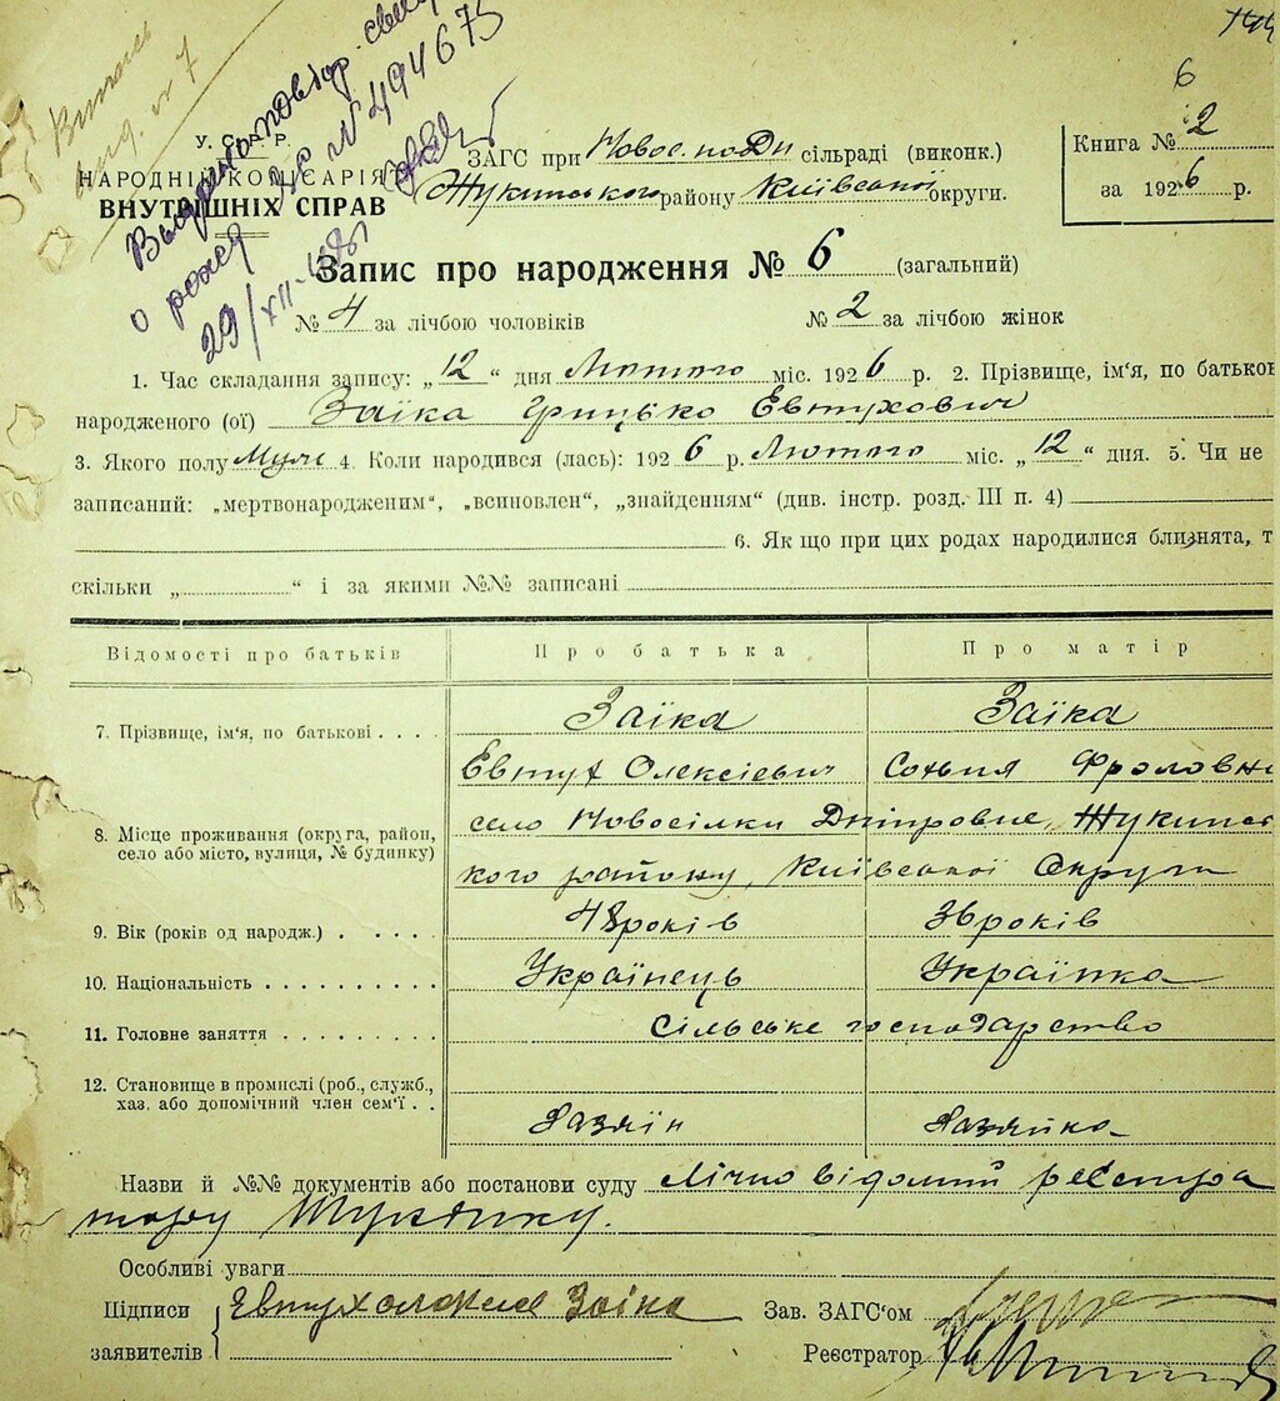 6
У. С. Р. Р.
НАРОДНІЙ КОМІСАРІЯТ
ВНУТРІШНІХ СПРАВ
Видано повтор.
о рожд
№ 494675
29/XII-
ЗАГС при Новос. по Дн сільраді (виконк.)
Жукинського району Київської округи.
Книга № 2
за 1926 р.
Запис про народження № 6 (загальний)
№ 4 за лічбою чоловіків № 2 за лічбою жінок
1. Час складання запису: „12“ дня Лютого міс. 1926 р. 2. Прізвище, ім‘я, по батькові
народженого (ої) Заїка Грицько Евтухович
3. Якого полу Муж 4. Коли народився (лась): 1926 р. Лютого міс. „12“ дня. 5. Чи не
записаний: „мертвонародженим“, „всиновлен“, „знайденням“ (див. інстр. розд. III п. 4)
6. Як що при цих родах народилися близнята, т
скільки „ “ і за якими №№ записані
Відомості про батьків Про батька Про матір
7. Прізвище, ім‘я, по батькові Заїка Заїка
Евтух Олексієвич Софья Фроловна
8. Місце проживання (округа, район, село або місто, вулиця, № будинку) село Новосілки Дніпровие, Жукинсь
кого району, Київської Округи
9. Вік (років од народж.) 48 років 36 років
10. Національність Українець Українка
11. Головне заняття Сільське господарство
12. Становище в промислі (роб., служб.,
хаз. або допомічний член сем‘ї Хазяїн Хазяйка
Назви й №№ документів або постанови суду Лічно відомий реєстра
тору
Особливі уваги
Підписи Заіка Зав. ЗАГС‘ом
заявителів Реєстратор